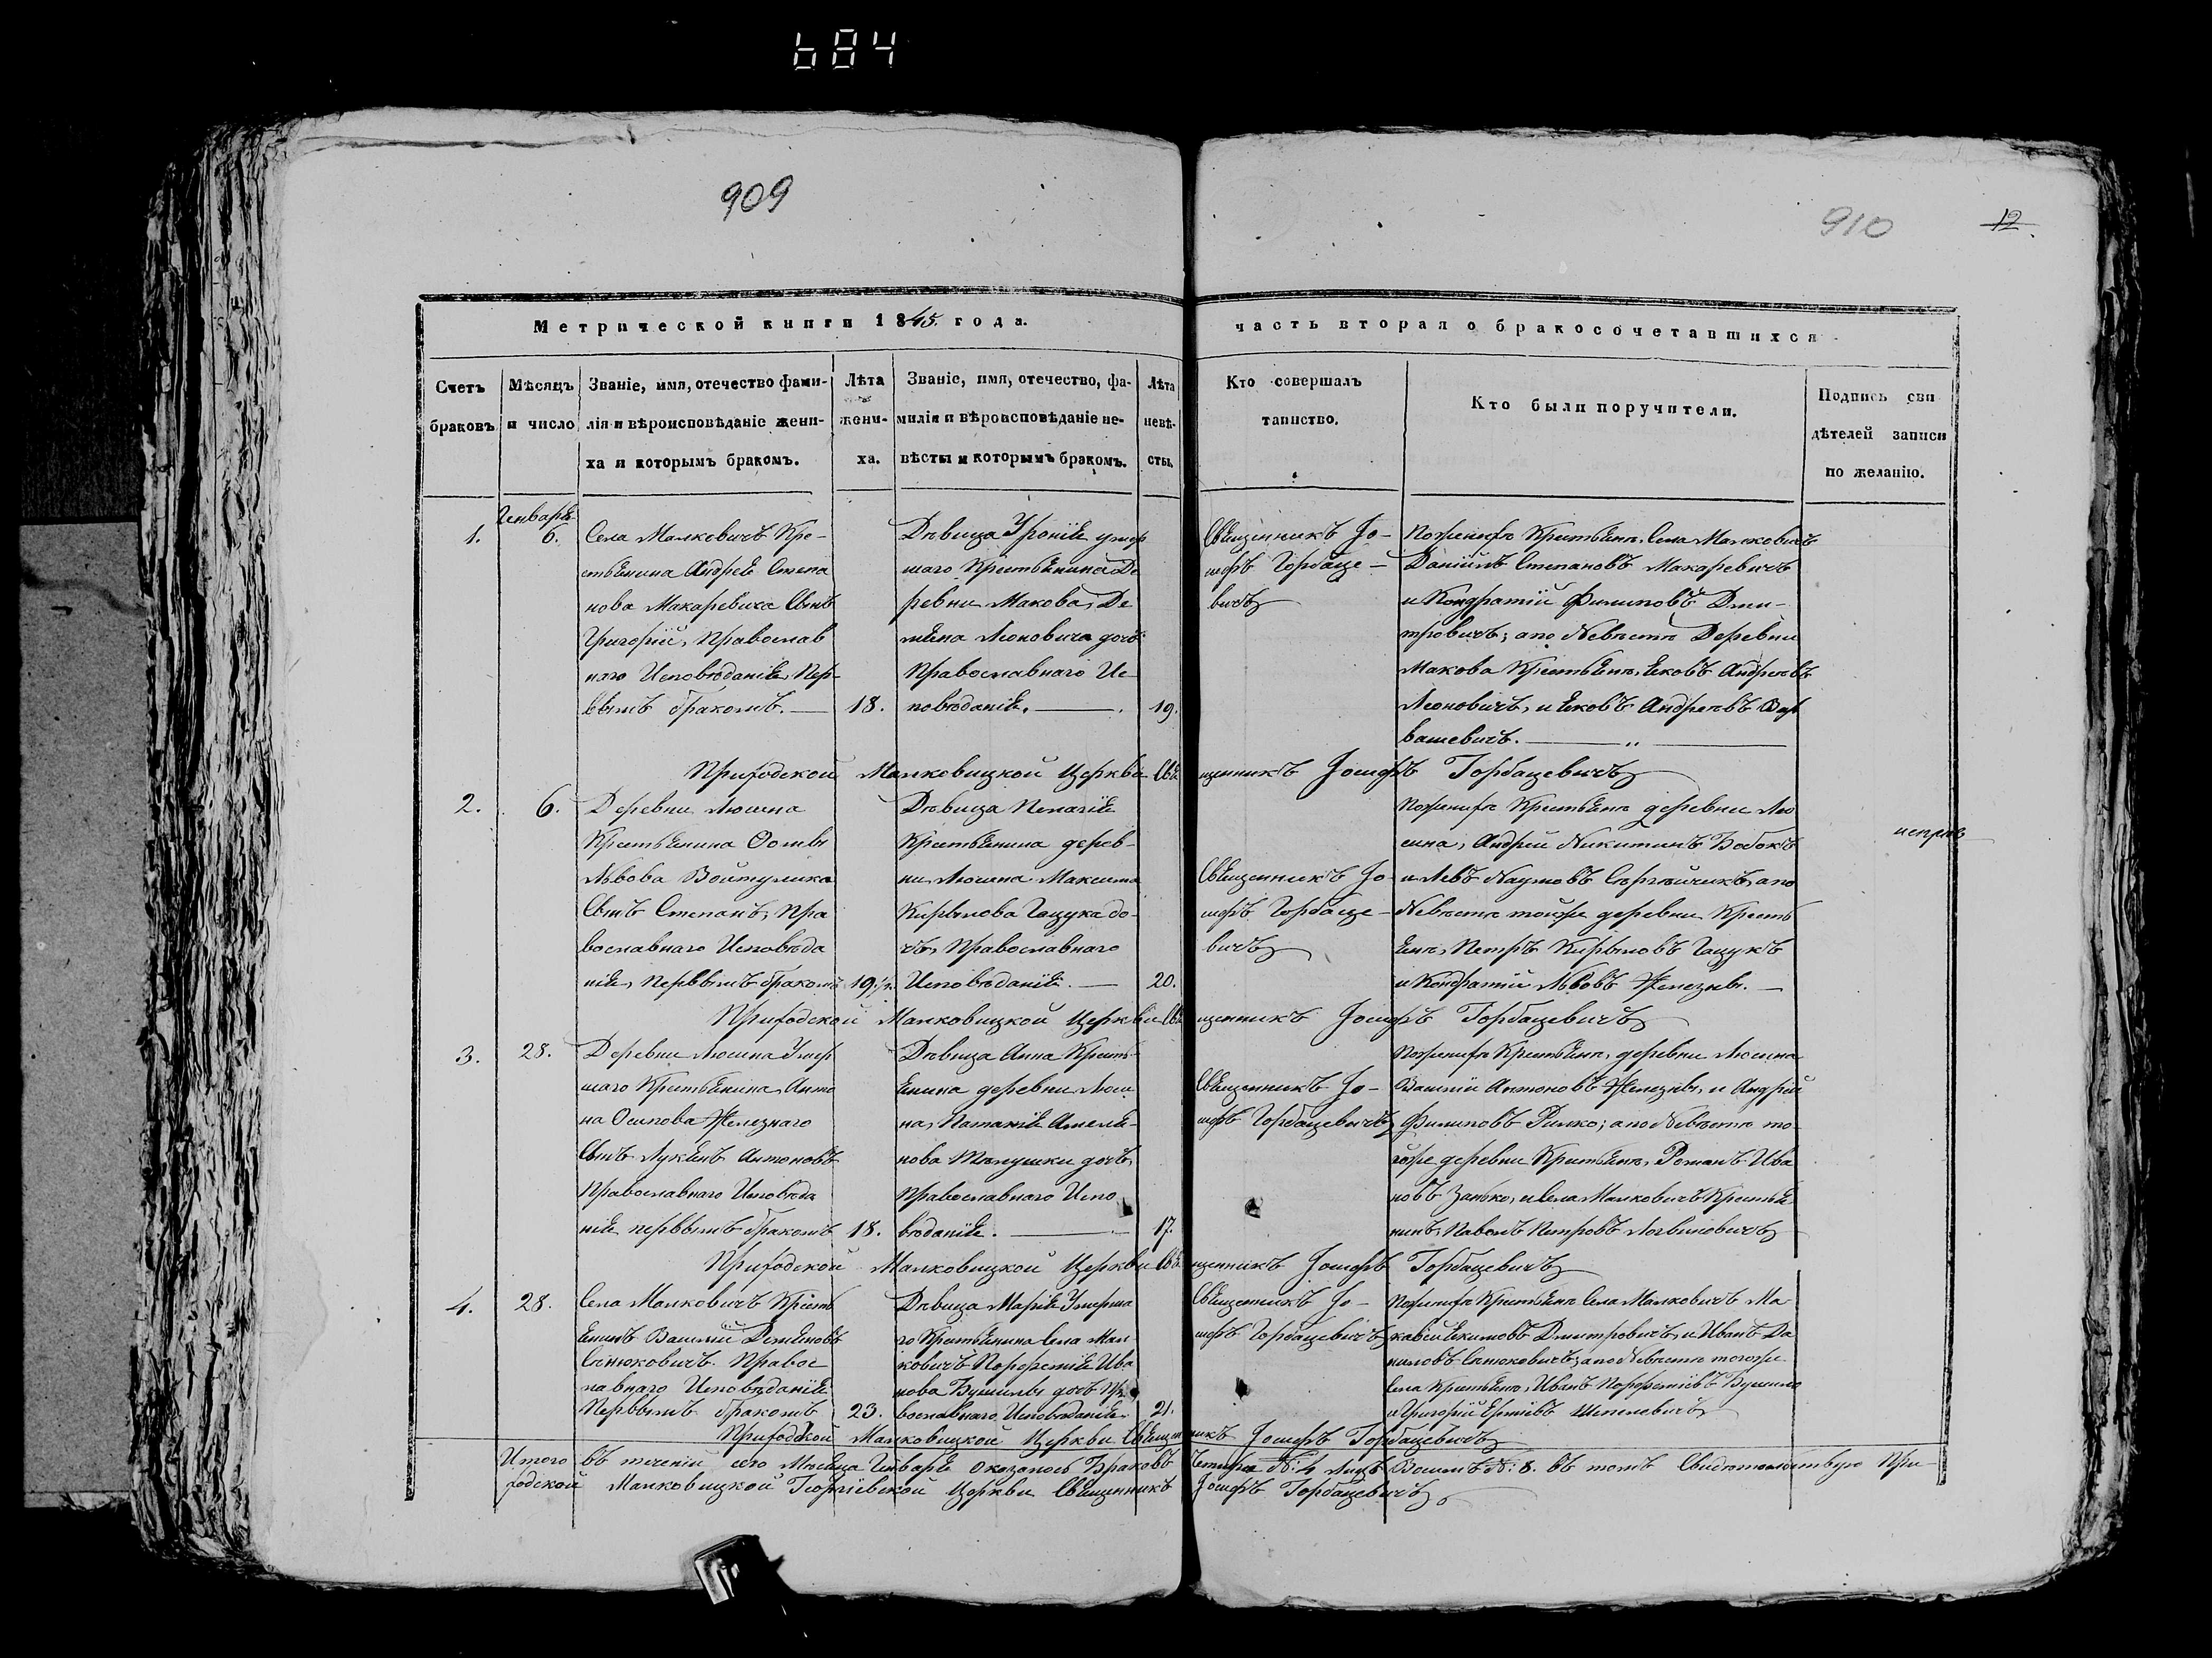 684
909
910
12
Метрической книги 1845. года.
часть вторая о бракосочетавшихся
Счетъ браковъ
Мѣсяцъ и число
Званіе, имя, отечество фами-
лія и вѣроисповѣданіе жени-
ха и которымъ бракомъ.
Лѣта
жени-
ха.
Званіе, имя, отечество, фа-
милія и вѣроисповѣданіе не-
вѣсты и которымъ бракомъ.
Лѣта
невѣ-
сты.
Кто совершалъ
таинство.
Кто были поручители.
Подпись сви
дѣтелей записи
по желанію.
1.
Генваря
6.
Села Малковичъ Кре-
стьянина Андрея Степа
нова Макаревича Сынъ
Григорій, Православ
наго Исповѣданія, Пер-
вымъ бракомъ.
18.
Дѣвица Уронія умер
шаго Крестьянина Де
ревни Макова, Де
мьяна Леоновича дочь
Православнаго Ис
повѣданія.
19.
Священникъ Іо-
сифъ Горбаце-
вичъ
По женихѣ Крестьяне, Села Малковичъ
Даніилъ Степановъ Макаревичъ
и Кондратій Филиповъ Дми-
тровичъ; а по Невѣстѣ Деревни
Макова Крестьяне, Яковъ Андреевъ
Леоновичъ, и Яковъ Андреевъ Вар
вашевичъ.
Приходской Малковицкой Церкви Священникъ Іосифъ Горбацевичъ
2.
6.
Деревни Люсина
Крестьянина Фомы
Львова Войтулика
Сынъ Степанъ, Пра
вославнаго Исповѣда
нія, Первымъ бракомъ
19 1/2.
Дѣвица Пелагія
Крестьянина дерев-
ни Люсина Максима
Кирылова Гацука до-
чь, Православнаго
Исповѣданія.
20.
Священникъ Іо-
сифъ Горбаце-
вичъ
По женихѣ Крестьяне деревни Лю
сина, Андрей Никитинъ Бобокъ
и Левъ Наумовъ Сергейчикъ, а по
Невѣстѣ тойже деревни Кресть
яне, Петръ Кирыловъ Гацукъ
и Кондратій Львовъ Железны.
Приходской Малковицкой Церкви Священникъ Іосифъ Горбацевичъ
3.
28.
Деревни Люсина Умер
шаго Крестьянина, Анто
на Осипова Железнаго
Сынъ Лукьянъ Антоновъ
Православнаго Исповѣда
нія первымъ бракомъ
18.
Дѣвица Анна Кресть-
янина деревни Люси
на,
нова дочь,
Православнаго Испо
вѣданія.
17.
Священникъ Іо-
сифъ Горбацевичъ
По женихѣ Крестьяне, деревни Люсина
Василій Антоновъ Железны, и Андрей
Филиповъ а по Невѣстѣ то-
йже деревни Крестьяне, Романъ Ива
новъ Занько, и Села Малковичъ Крестья
нинъ, Павелъ Петровъ Логвиновичъ
Приходской Малковицкой Церкви Священникъ Іосифъ Горбацевичъ
4.
28.
Села Малковичъ Кресть
янинъ Василій Демьяновъ
Сенюковичъ. Правос
лавнаго Исповѣданія
Первымъ бракомъ
23.
Дѣвица Марія Умерша
го Крестьянина Села Мал
ковичъ Порфетія Ива
нова Бушилы дочь Пра
вославнаго Исповѣданія.
21.
Священникъ Іо-
сифъ Горбацевичъ
По женихѣ Крестьяне Села Малковичъ Ма
кавей Якимовъ Дмитровичъ, и Иванъ Да
ниловъ Сенюковичъ; а по Невѣстѣ тогоже
Села Крестьяне, Иванъ Порфетіевъ Бушило
и Григорій Шепелевичъ
Приходской Малковицкой Церкви Священникъ Іосифъ Горбацевичъ
Итого въ теченіи сего Мѣсяца Генваря Оказалось Браковъ Четыре №. 4 Лицъ Восемь №. 8. въ томъ Свидѣтельствую При-
ходской Малковицкой Георгіевской Церкви Священникъ Іосифъ Горбацевичъ